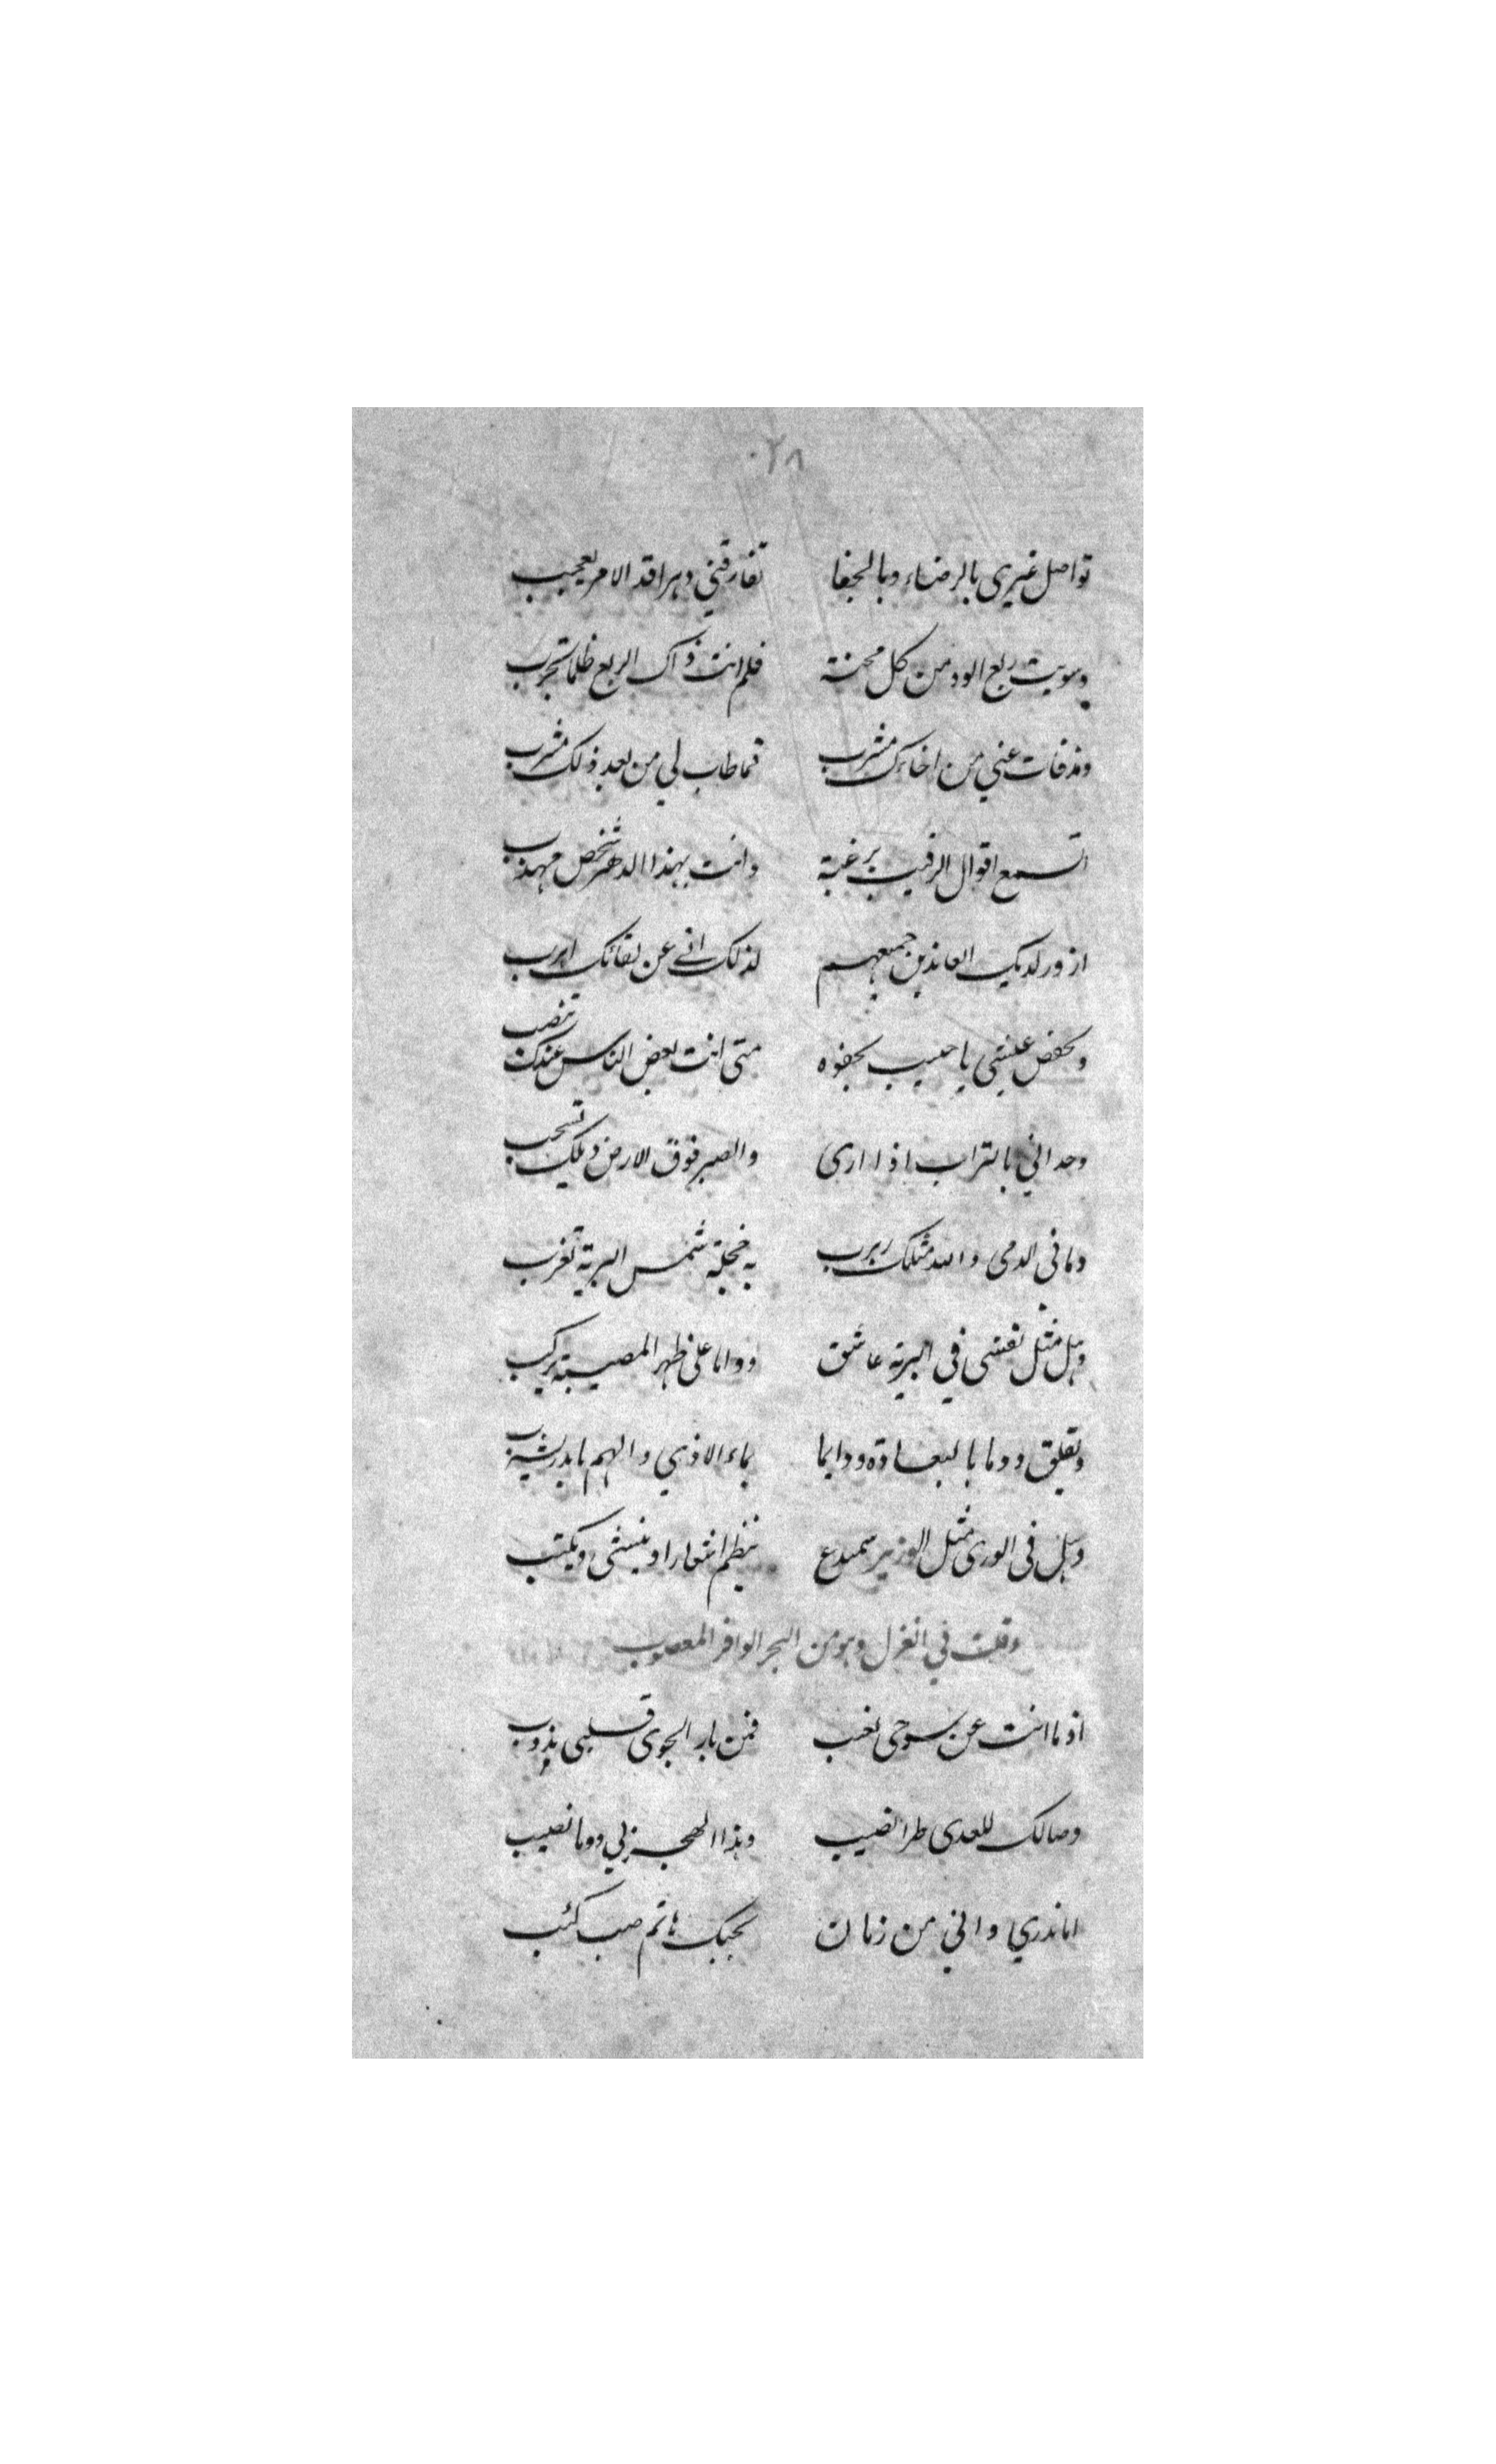 ٠٢٨
تواصل غيري بالرضاء وبالجفا تفارقني دهرا قد الامر يعجب
وسويت ربع الود من كل محنة فلم انت ذاك الربع ظلما تخرب
ومذ فات عني من اخائك مشرب فما طاب لي من بعد ذلك مشرب
اتسمع اقوال الرقيب برغبة وانت بهذا الدهر شخص مهذب
ازور لديك العاذلين جميعهم لذلك اني عن لقائك اهرب
وتخفض عيشي يا حبيب بجفوه متى انت بعض الناس عندك تنصب
وحد اني بالتراب اذا ارى والصبر فوق الارض ذيلك تسحب
وما في الدمى والله مثلك ربرب به خجلة شمس البرية تغرب
وهل مثل نفسي في البرية عاشق دواما على ظهر المصيبة يركب
وتقلق دوما بالبعاد ودايما بماء الاذي والهم يا بدر يشرب
وهل في الورى مثل الوزير سميدع ينظم اشعارا وينشي ويكتب
وقلت في الغزل وهو من البحر الوافر المعصوب
اذ ما انت عن سوحى تغب فمن نار الجوى قلبي يذوب
وصالك للعدى طرا نصيب وهذا الهجر لي دوما نصيب
اما تدري واني من زمان بحبك هائم صب كئب